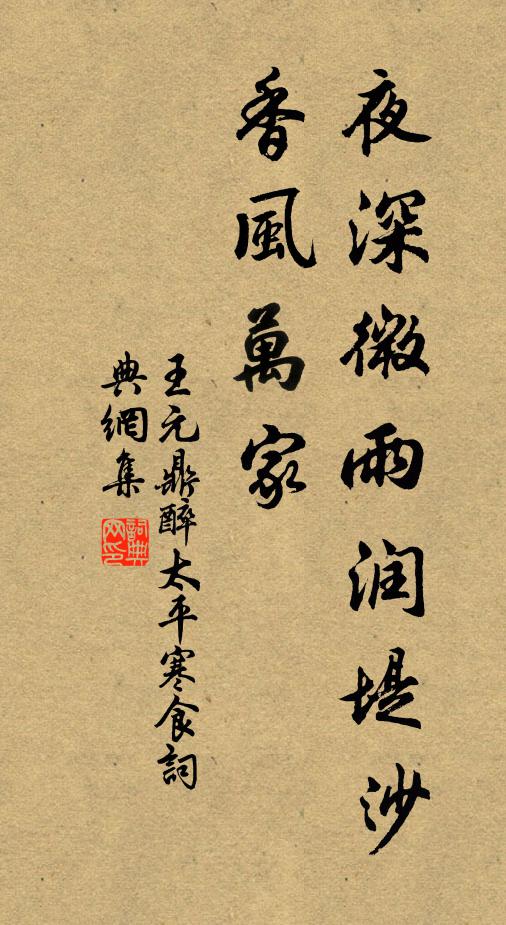 夜深微雨润堤沙
香風萬家
王元鼎醉太平寒食詞
典網集
詞典网印